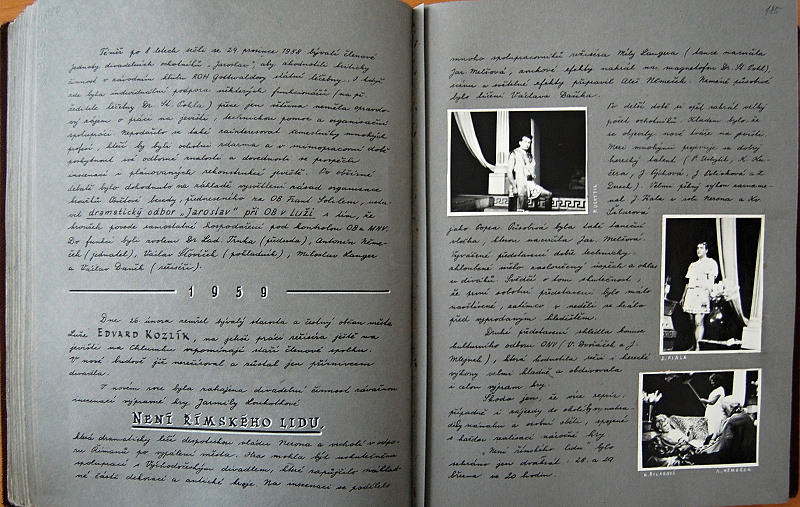 Téměř po 8 letech sešli se 29 prosince 1958 bývalí členové
jednoty divadelních ochotníků „Jaroslav", aby zhodnotili kriticky
činnost v závodním klubu ROH Gottwaldovy státní léčebny. I když
zde byla individuální podpora některých funkcionářů (na př.
ředitele léčebny Dr. St. Pohla) přece jen většina neměla opravdo-
vý zájem o práci na jevišti; technickou pomoc a organisační
spolupráci. Nepodařilo se také zainteresovat zaměstnance mnohých
profesí, kteří by byli ochotni zdarma a v mimopracovní době
poskytnout své odborné znalosti a dovednosti ve prospěch
inscenací i plánovaných rekonstrukcí jeviště. Po obšírné
debatě bylo dohodnuto na základě vysvětlení zásad organisace
Osvětové besedy, předneseného na OB Frant. usta-
vit dramatický odbor „Jaroslav" při OB v Luži s tím, že
kroužek povede samostatné hospodaření pod kontrolou OB a MNV.
Do funkcí byli zvoleni Dr. Lad. Trnka (předseda), Antonín Něme-
ček (jednatel), Václav (pokladník), Miloslav Langer
a Václav Daněk (režiséři).
1959
Dne 26 února zemřel bývalý starosta a čestný občan města
Luže EDVARD KOZLÍK, na jehož práce režiséra ještě na
jevišti na Chlumku vzpomínají staří členové spolku.
V nové budově již nerežíroval a zůstal jen příznivcem
divadla.
V novém roce byla zahájena divadelní činnost závažnou
inscenací výpravné hry Jarmily Loukotkové
NENÍ ŘÍMSKÉHO LIDU,
která dramaticky líčí despotickou vládu Nerona a vrcholí v odpo-
ru Římanů po vypálení města. Hra mohla být uskutečněna
spoluprací s Východočeským divadlem, které zapůjčilo náklad-
né části dekorací a antické kroje. Na inscenaci se podílelo
185
mnoho spolupracovníků režiséra Míly Langra (tance nacvičila
Jar. Melšová, zvukové efekty nahrál na magnetofon Dr. St. Pohl),
scénu a světelné efekty připravil Aleš Němeček. Neméně působivé
bylo líčení Václava Daňka.
Po delší době se opět zahrál velký
počet ochotníků. Kladem bylo že
se objevily nové tváře na jevišti.
Mezi mnohými projevuje se dobrý
herecký talent (P. K. Ku-
čera, J. J. a Z.
Dusek). Velmi pěkný výkon zazname-
nal J. Fiala v roli Nerona a Kv.
jako Popea. Působivá byla také taneční
vložka, kterou nacvičila Jar. Melšová.
Vyvážené představení dobře technicky
skloubené mělo zasloužený úspěch a ohlas
u diváků. Svědčí o tom skutečnost,
že první sobotní představení bylo málo
navštívené, zatímco v neděli se hrálo
před vyprodaným hledištěm.
Druhé představení shlédla komise
kulturního odboru ONV (V. Dvořáček a J.
Mlejnek), která hodnotila režii i herecké
výkony velmi kladně a obdivovala
i celou výpravu hry.
Škoda jen, že více repris,
případně i zájezdy do okolí
námahu a osobní oběti, spojené
s každou realisací náročné hry.
„Není římského lidu" bylo
sehráno jen dvakrát: 28. a 29.
března ve 20 hodin.
J. FIALA